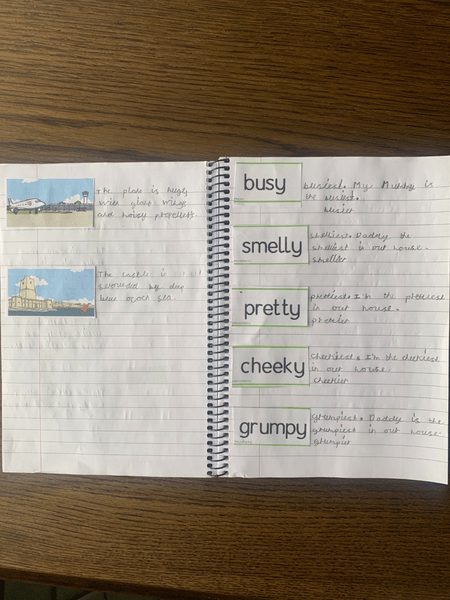 The plane is hugh
with giant wings
and noisy propellers.
The castle is
surounded by deep
blue ocean sea.
busy
busiest. My Mummy is
the busiest.
busier
smelly
smelliest. Daddy the
smelliest in our house.
smellier
pretty
prettiest. I'm the prettiest
in our house.
prettier
cheeky
cheekiest. I'm the cheekiest
in our house.
cheekier
grumpy
grumpiest. Daddy is the
grumpiest in our house.
grumpier